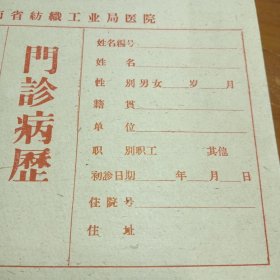 南省紡織工业局医院
門診病歷
姓名編号
姓 名
性 別男女 岁 月
籍 貫
单 位
职 別职工 其他
初診日期 年 月 日
住院号
住 址